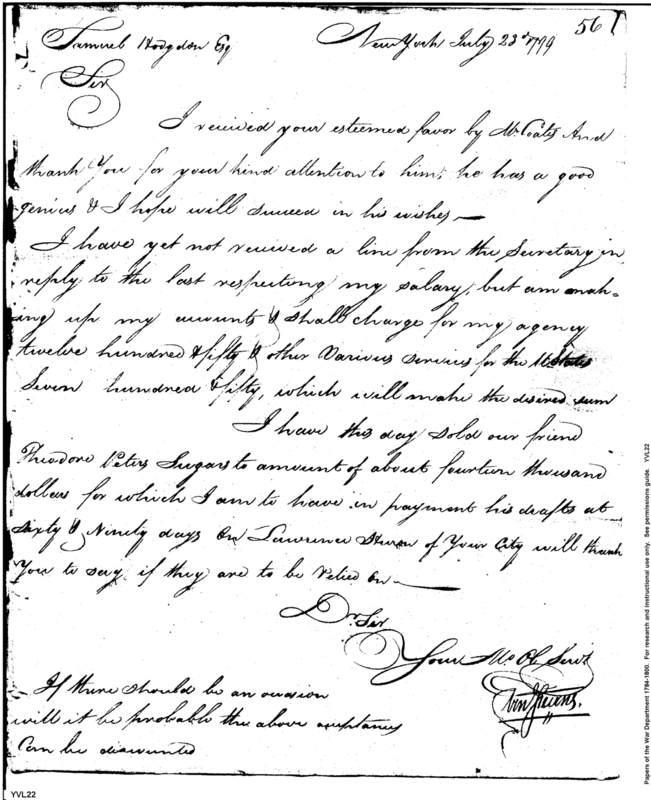 561
Samuel Hodgdon Esq New York July 23d 1799
Sir
I received your esteemed favor by Mr. Coates And
thank You for your kind attention to him; he has a good
genius & I hope will succeed in his wishes —
I have yet not received a line from the Secretary in
reply to the last respecting my salary, but am mak-
ing up my accounts & shall charge for my agency
twelve hundred & fifty & other Various services for the U States
Seven hundred & fifty, which will make the desired sum
I have this day sold our friend
Theodore Peters Sugars to amount of about fourteen thousand
dollars for which I am to have in payment his drafts at
sixty & Ninety days On Lawrence of Your City will thank
You to say if they are to be relied on —
Dr. Sir
Your Mo Ob Servt
Eben Stevens.
If there should be an occasion
will it be probable the above acceptances
Can be discounted
Papers of the War Department 1784-1800. For research and instructional use only. See permissions guide. YVL22
YVL22